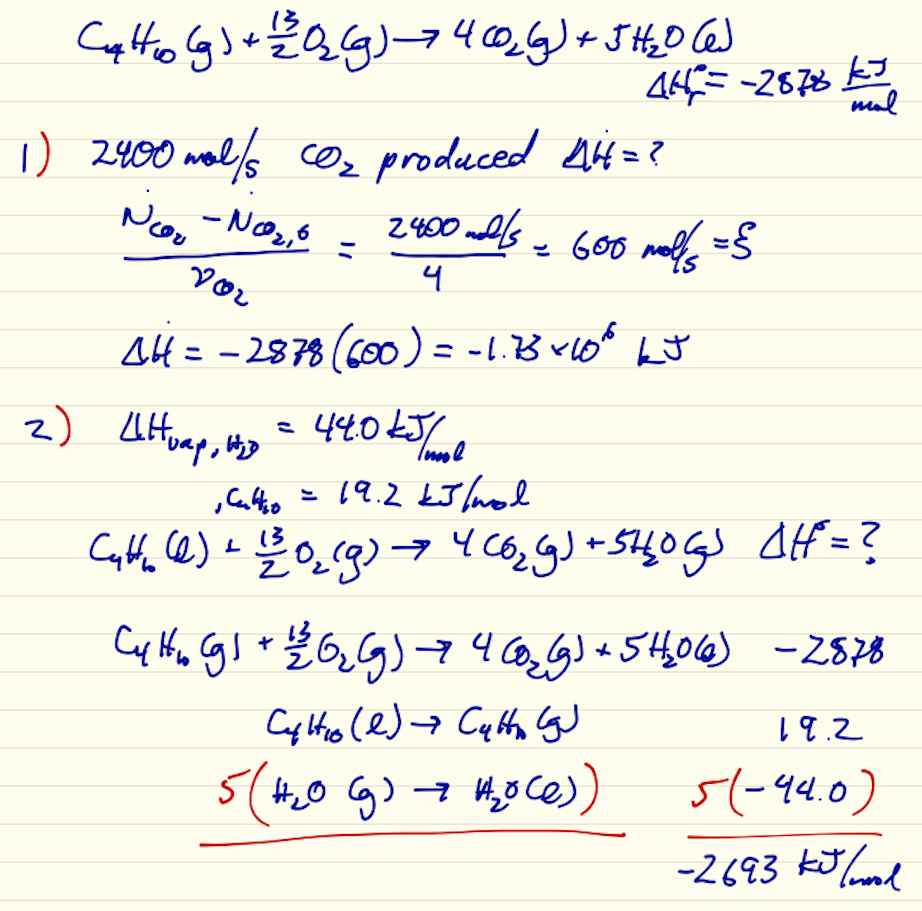 C₄H₁₀(g) + 13/2 O₂(g) → 4CO₂(g) + 5H₂O(l)
ΔH°ᵣ = -2878 kJ/mol
1) 2400 mol/s CO₂ produced ΔḢ = ?
(Ṅ_CO₂ - Ṅ_CO₂,0)/ν_CO₂ = (2400 mol/s)/4 = 600 mol/s = ξ
ΔḢ = -2878(600) = -1.73×10⁶ kJ
2) ΔH_vap,H₂O = 44.0 kJ/mol
,C₄H₁₀ = 19.2 kJ/mol
C₄H₁₀(l) + 13/2 O₂(g) → 4CO₂(g) + 5H₂O(g) ΔH° = ?
C₄H₁₀(g) + 13/2 O₂(g) → 4CO₂(g) + 5H₂O(l) -2878
C₄H₁₀(l) → C₄H₁₀(g) 19.2
5(H₂O(g) → H₂O(l)) 5(-44.0)
-2693 kJ/mol